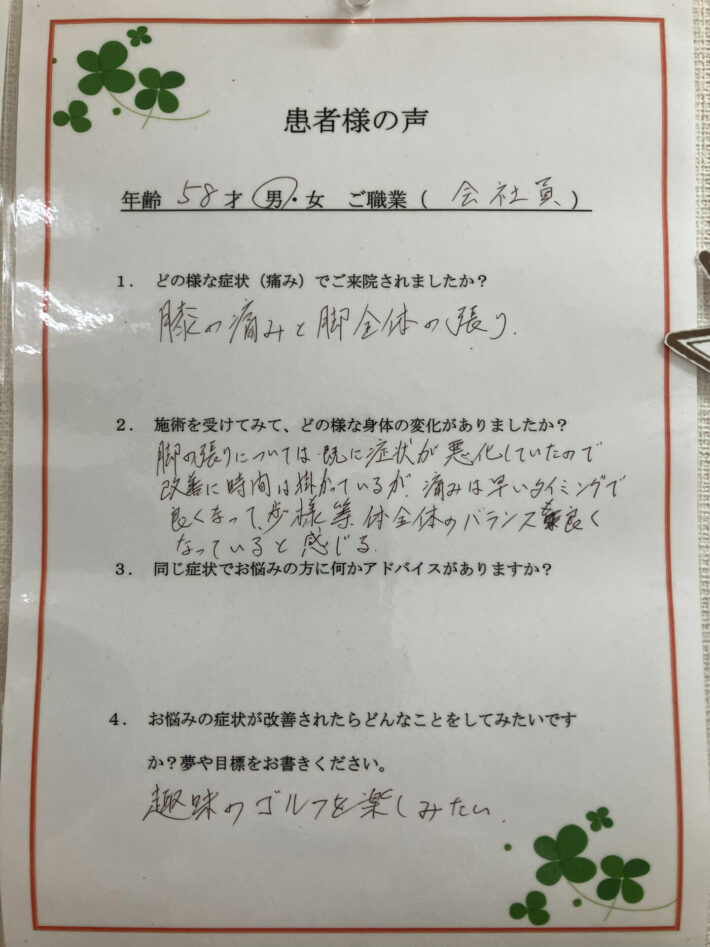 患者様の声
年齢 58 才 男・女 ご職業 ( 会社員 )
1. どの様な症状（痛み）でご来院されましたか？
膝の痛みと脚全体の張り.
2. 施術を受けてみて、どの様な身体の変化がありましたか？
脚の張りについては既に症状が悪化していたので
改善に時間は掛かっているが、痛みは早いタイミングで
良くなって、歩様等、体全体のバランス良く
なっていると感じる.
3. 同じ症状でお悩みの方に何かアドバイスがありますか？
4. お悩みの症状が改善されたらどんなことをしてみたいです
か？夢や目標をお書きください。
趣味のゴルフを楽しみたい.